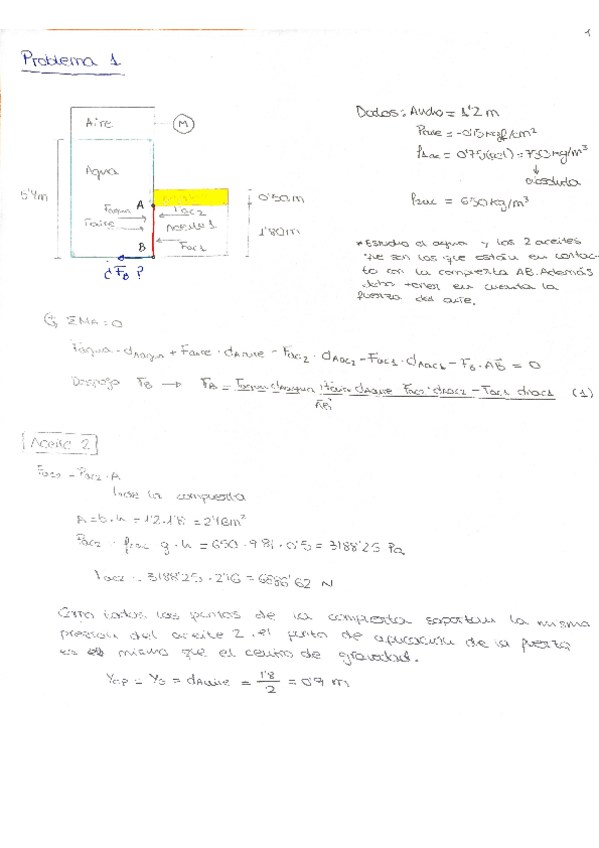 1
Problema 1
Aire
M
Agua
5'4m
A
0'50m
Fagua
Fac2
Faire
Aceite 1
1'80m
B
Fac1
¿FB?
Datos: Ancho = 1'2 m
Paire = -0'15 kgf/cm²
ρ1ac = 0'75 = 750 kg/m³
absoluta
ρ2ac = 650 kg/m³
*Estudio el agua y los 2 aceites
que son los que están en contac-
to con la compuerta AB. Además
debo tener en cuenta la
fuerza del aire.
ΣMA = 0
Fagua · dAagua + Faire · dAaire - Fac2 · dAac2 - Fac1 · dAac1 - FB · AB = 0
Despejo FB → FB = Fagua · dAagua + Faire · dAaire - Fac2 · dAac2 - Fac1 · dAac1 (1)
AB
Aceite 2
Fac2 = Pac2 · A
la compuerta
A = b · h = 1'2 · 1'8 = 2'16m²
Pac2 = ρ2ac · g · h = 650 · 9'81 · 0'5 = 3188'25 Pa
Fac2 = 3188'25 · 2'16 = 6886'62 N
Como todos los puntos de la compuerta soportan la misma
presión del aceite 2, el punto de aplicación de la fuerza
es el mismo que el centro de gravedad.
= dAaire = 1'8/2 = 0'9 m